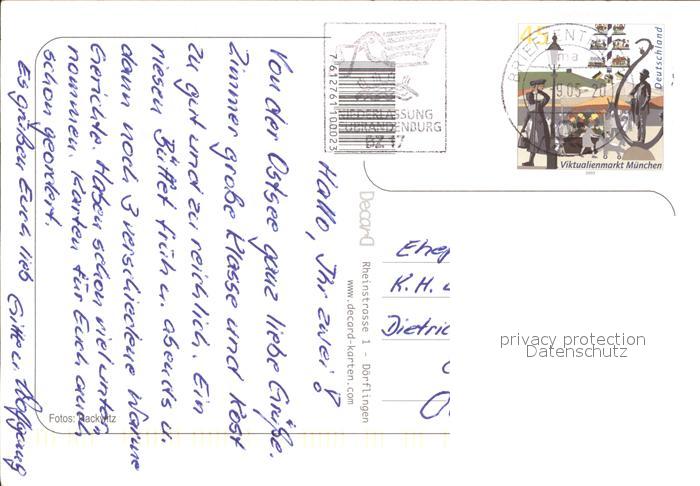 Hallo, Ihr zwei!
Von der Ostsee ganz liebe Grüße.
Zimmer große Klasse und Kost
zu gut und zu reichlich. Ein
riesen Büffet früh u. abends u.
dann noch 3 verschiedene Warme
Gerichte. Haben schon viel unter-
nommen. Karten für Euch auch
schon geordert.
Es grüßen Euch lieb Gitte u. Wolfgang
Fotos:
7612761100023
NIEDERLASSUNG
BRANDENBURG
Decard
Rheinstrasse 1 - Dörflingen
www.decard-karten.com
45
Deutschland
Viktualienmarkt München
2003
BRIEFZENTRUM
K.H.
Dietric
privacy protection
Datenschutz